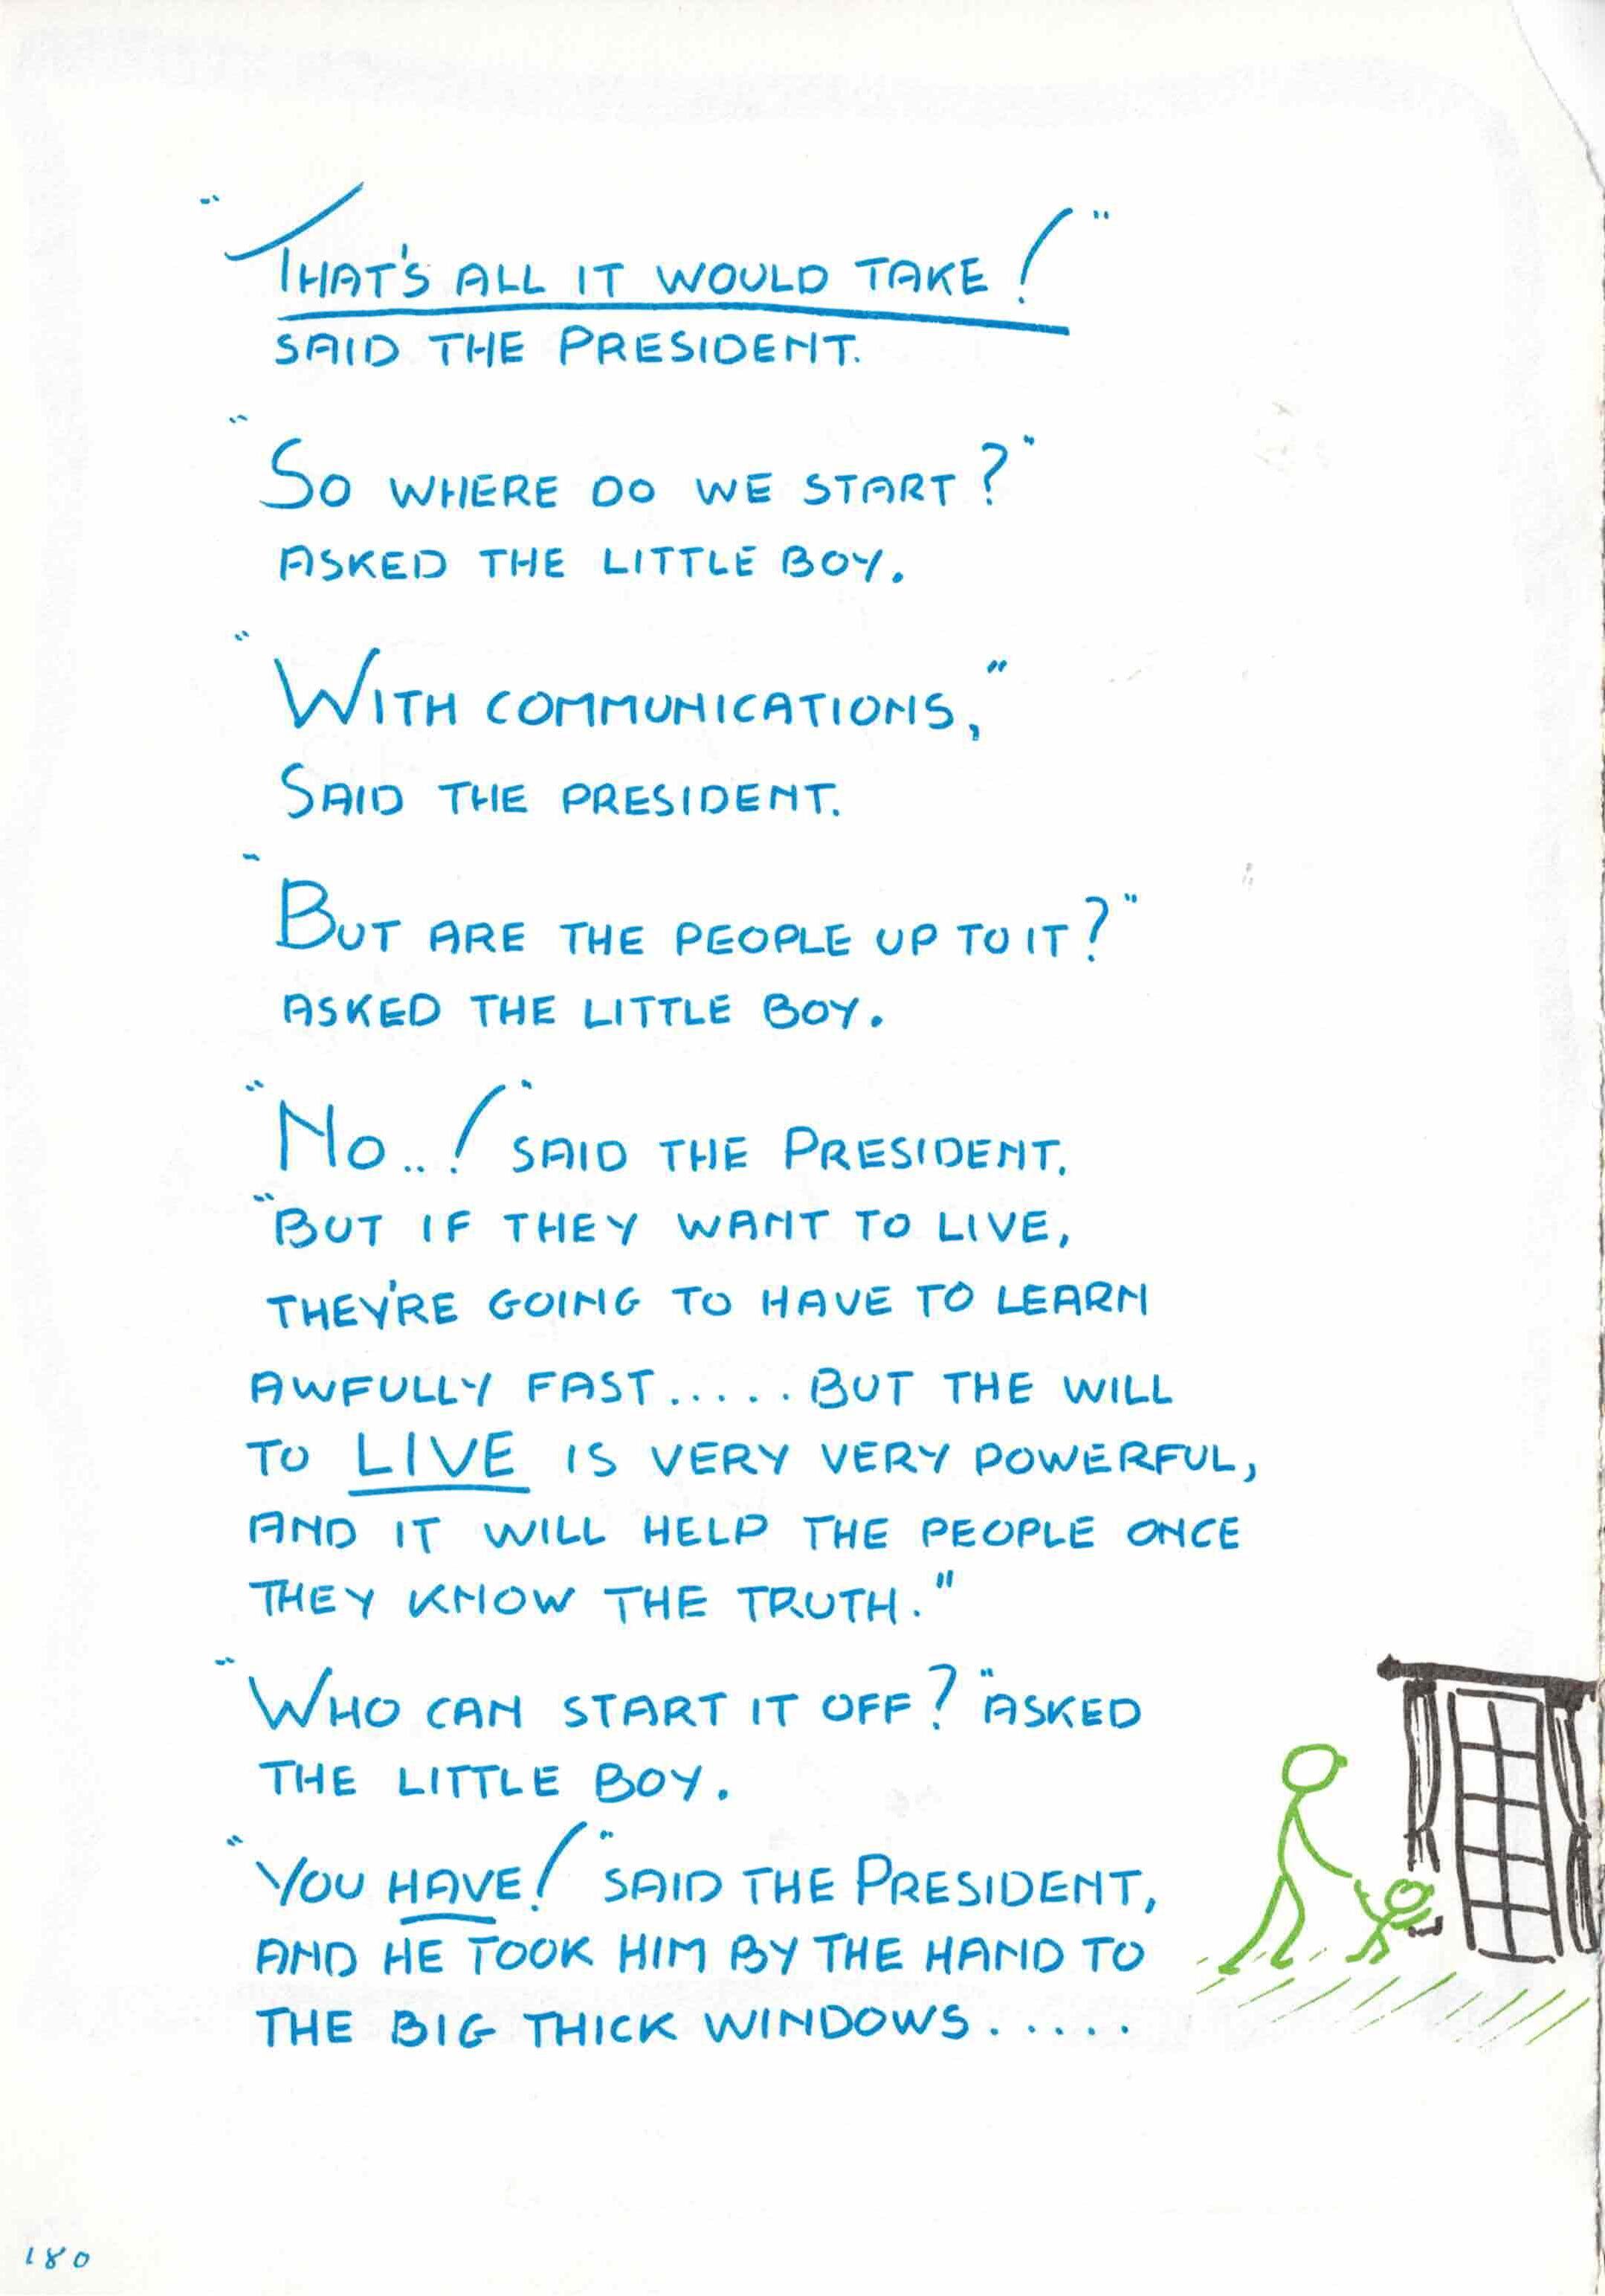 "THAT'S ALL IT WOULD TAKE!"
SAID THE PRESIDENT.
"SO WHERE DO WE START?"
ASKED THE LITTLE BOY.
"WITH COMMUNICATIONS,"
SAID THE PRESIDENT.
"BUT ARE THE PEOPLE UP TO IT?"
ASKED THE LITTLE BOY.
"NO..!" SAID THE PRESIDENT.
"BUT IF THEY WANT TO LIVE,
THEY'RE GOING TO HAVE TO LEARN
AWFULLY FAST.....BUT THE WILL
TO LIVE IS VERY VERY POWERFUL,
AND IT WILL HELP THE PEOPLE ONCE
THEY KNOW THE TRUTH."
"WHO CAN START IT OFF?" ASKED
THE LITTLE BOY.
"YOU HAVE!" SAID THE PRESIDENT,
AND HE TOOK HIM BY THE HAND TO
THE BIG THICK WINDOWS.....
180